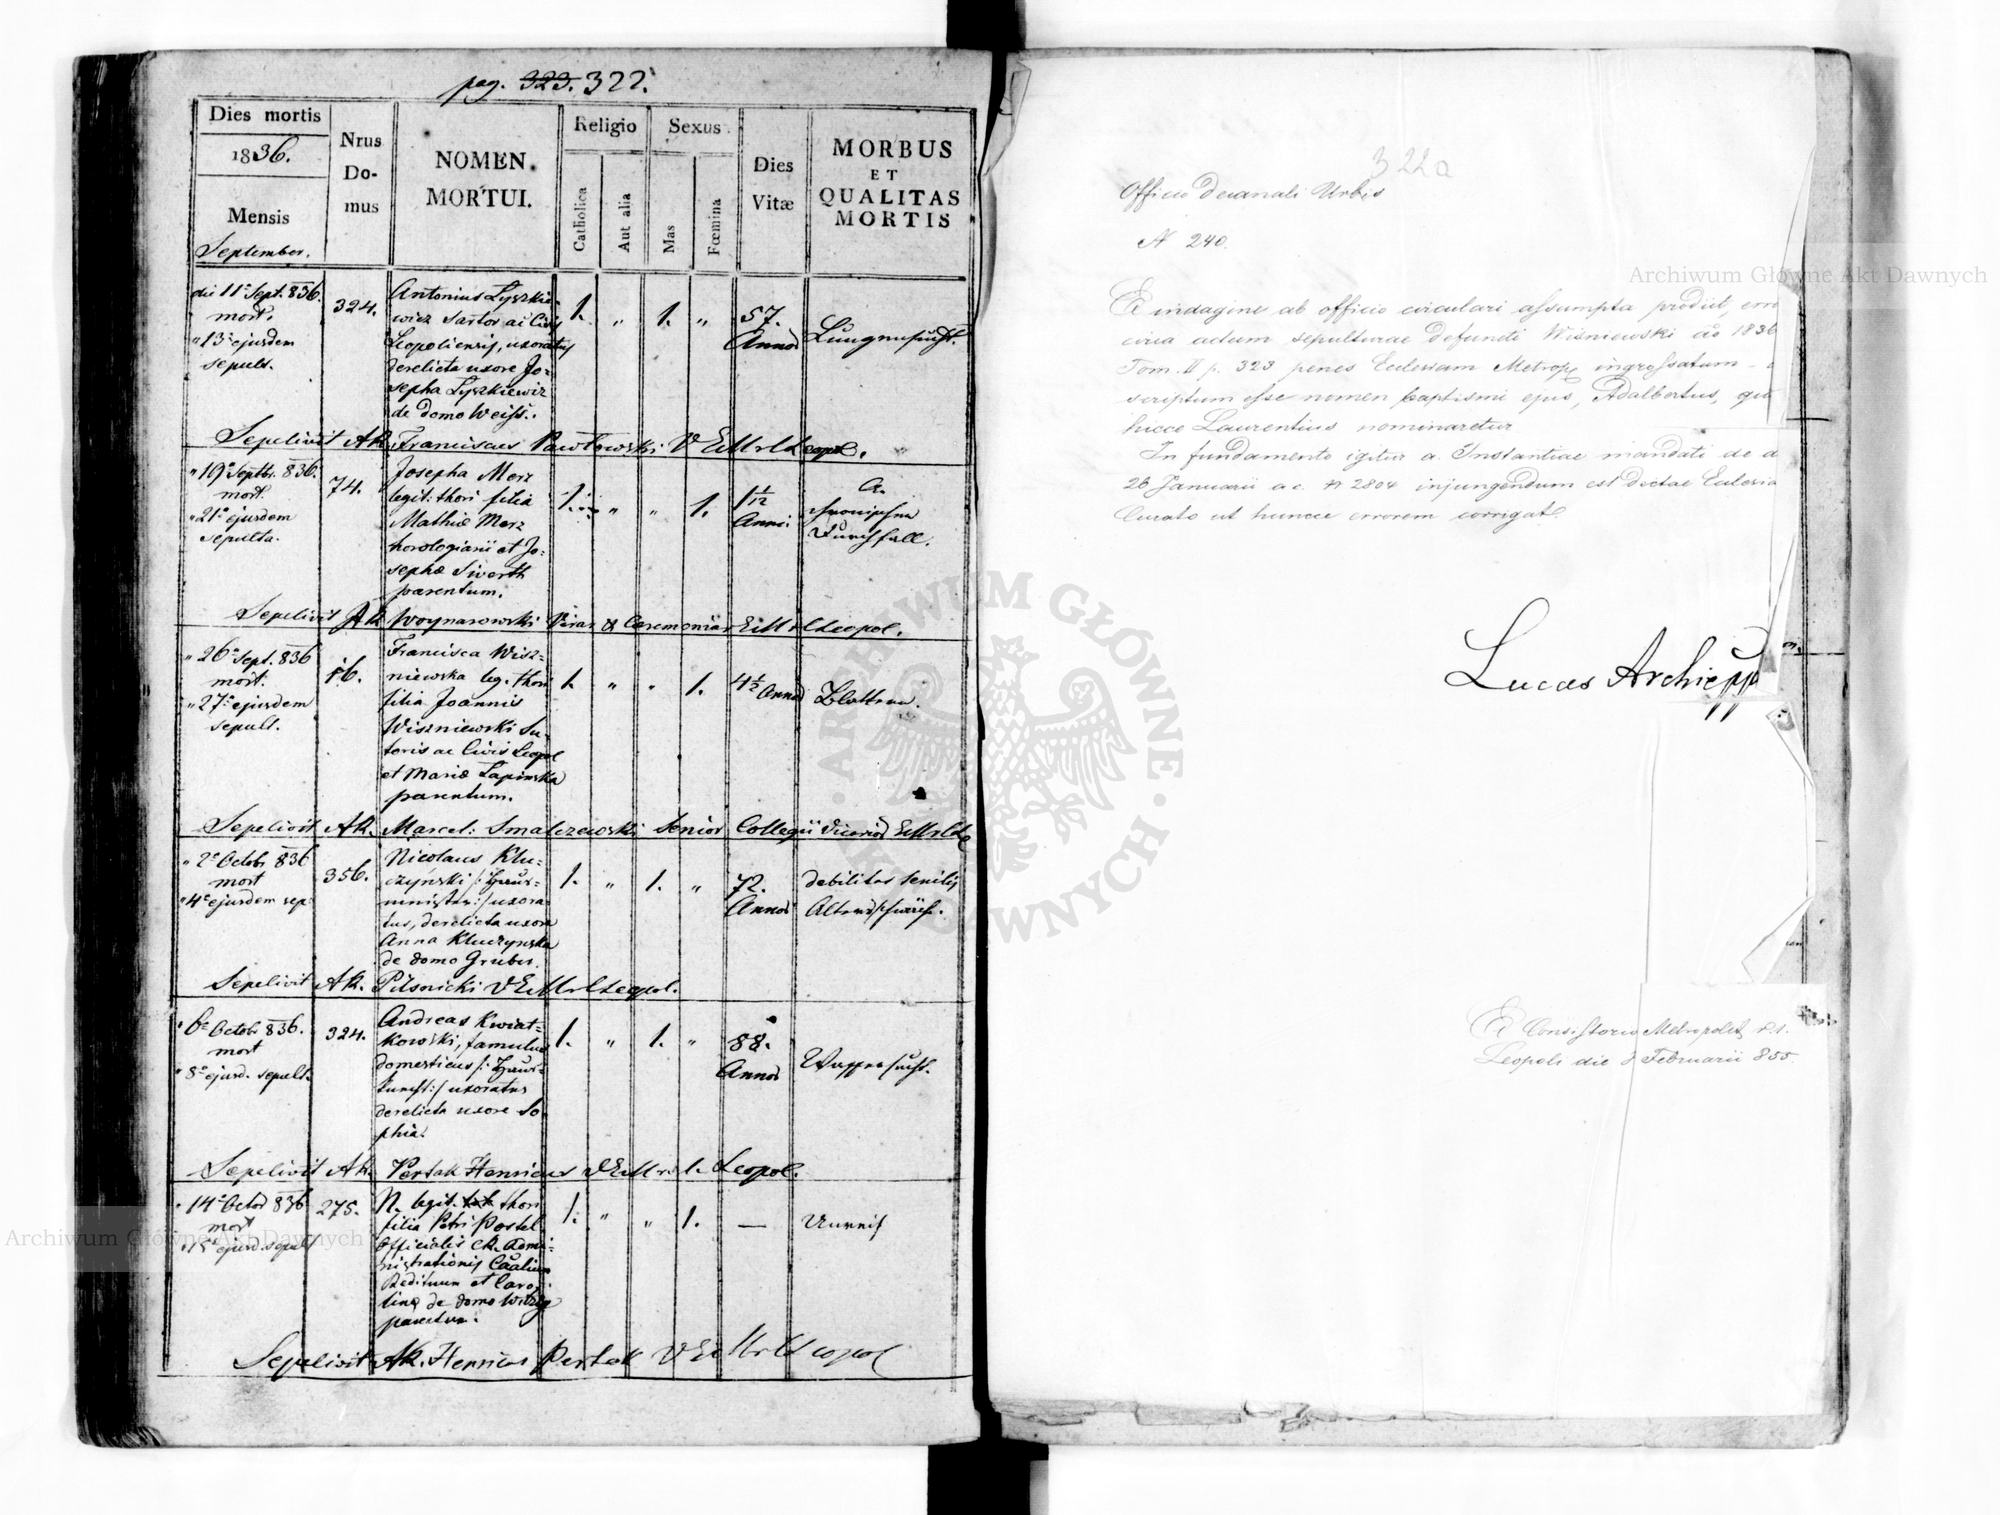 pag. 323. 322.
Dies mortis
1836.
Mensis
September.
Nrus
Do-
mus
NOMEN
MORTUI.
Religio
Catholica
Aut alia
Sexus
Mas
Fœmina
Dies
Vitæ
MORBUS
ET
QUALITAS
MORTIS
die 11ª Sept. 836.
mort.
" 13ª ejusdem
sepult.
324.
Antonius Lyszkie-
wicz Sartor ac Civis
Leopoliensis, uxoratus
derelicta uxore Jo-
sepha Lyszkiewicz
de domo Weiss.
1. " 1. "
57.
Annor
Lungensucht.
Sepelivit AR. Franciscus Pawłowski V E M r l Leopol.
" 19ª Septbr. 836.
mort.
" 21ª ejusdem
sepulta.
74.
Josepha Merz
legit: thori filia
Mathiæ Merz
horologiarii et Jo-
sephæ Siverth
parentum.
1. " " 1.
1 1/2
Anni
Durchfall.
Sepelivit AR Woynarowski Vicar & Caeremoniar E M r l Leopol.
" 26ª Sept. 836
mort.
" 27ª ejusdem
sepult.
16.
Francisca Wisz-
niewska leg. thori
filia Joannis
Wiszniewski Su-
toris ac Civis Leopol
et Mariæ Łapinska
parentum.
1. " " 1.
4 1/2 Annor
Blattern.
Sepelivit AR. Marcel: Smalczewski Senior Collegii Vicarior E M r l L
" 2ª Octobr 836
mort
" 4ª ejusdem sep:
356.
Nicolaus Klu-
czynski /: Haus-
meister :/ uxora-
tus, derelicta uxore
Anna Kluczynska
de domo Gruber.
1. " 1. "
72.
Annor
debilitas senilis
Altersschwäche.
Sepelivit AR. Pilsnicki V E M r l Leopol.
" 6ª Octobr 836.
mort
" 8ª ejusd. sepult.
324.
Andreas Kwiat-
kowski, famulus
domesticus /: Haus-
knecht :/ uxoratus
derelicta uxore So
phia.
1. " 1. "
88.
Annor
Wassersucht.
Sepelivit AR. Pertak Henricus V E M r l. Leopol.
" 14ª Octob 836
mort
" 15ª ejusd. sepult
275.
N. legit. thori
filia Petri Postel
Officialis CR. Admi-
nistrationis Cãalium
Redituum et Caro-
linæ de domo Witzig
parentum.
1. " " 1.
—
Unreif
Sepelivit AR. Henricus Pertak V E M r l Leopol
322a
Officio Decanali Urbis
N 240.
E indagine ab officio circulari assumpta prodiit, erro
circa actum sepulturae defuncti Wiśniewski ão 1836
Tom. II p. 323 penes Ecclesiam Metrop ingrossatum
scriptum esse nomen baptismi ejus, Adalbertus, qui
hicce Laurentius nominaretur
In fundamento igitur a. Instantiae mandati de d
26 Januarii a c. N 2804 injungendum est dictae Ecclesia
Curato ut huncce errorem corrigat.
Lucas Archiepp
E Consistorio Metropolit. r. l.
Leopoli die 8 Februarii 855.
Archiwum Główne Akt Dawnych
Archiwum Główne Akt Dawnych
ARCHIWUM GŁÓWNE · AKT DAWNYCH ·